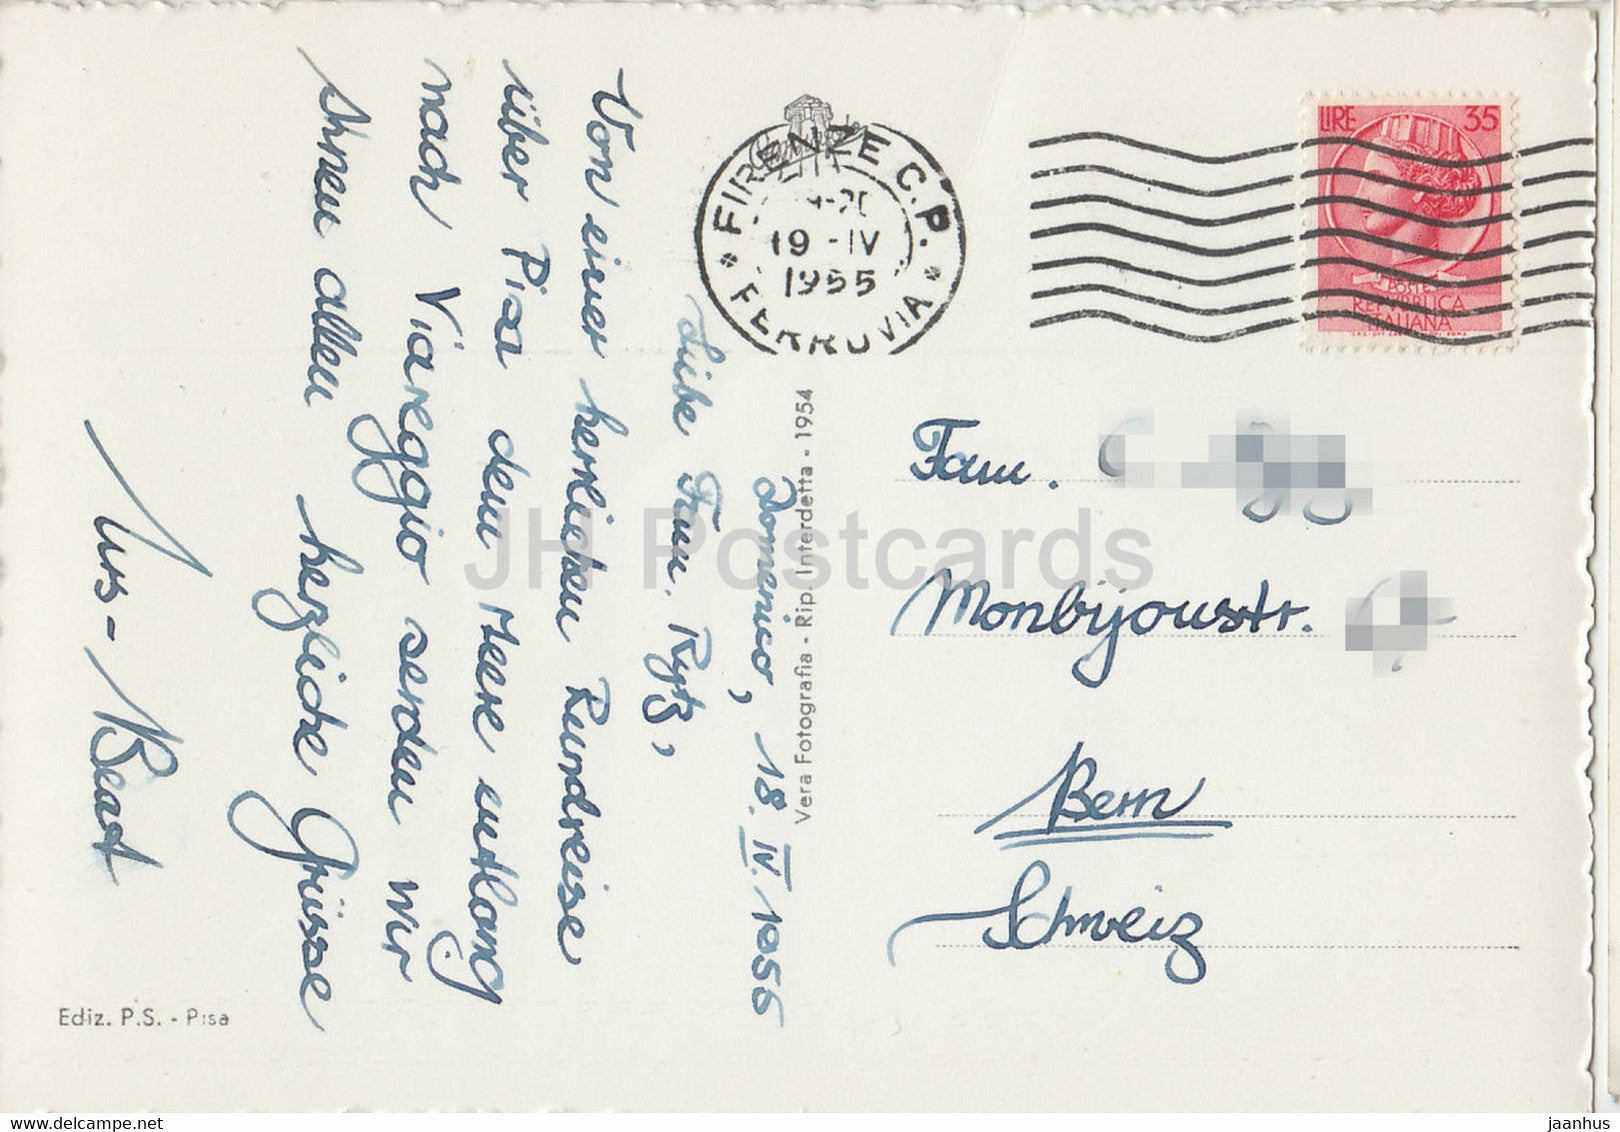 Domenico, 18. IV. 1955
Liebe Fam. Rytz,
Von einer herrlichen Rundreise
über Pisa dem Meere entlang
nach Viareggio senden wir
Ihnen allen herzliche Grüsse
Urs - Beat
Ediz. P.S. - Pisa
Vera Fotografia - Rip. Interdetta - 1954
FIRENZE C.P.
19 - IV
1955
* FERROVIA *
LIRE 35
POSTE
REPVBBLICA
ITALIANA
Fam.
Monbijoustr.
Bern
Schweiz
JH Postcards
www.delcampe.net
jaanhus